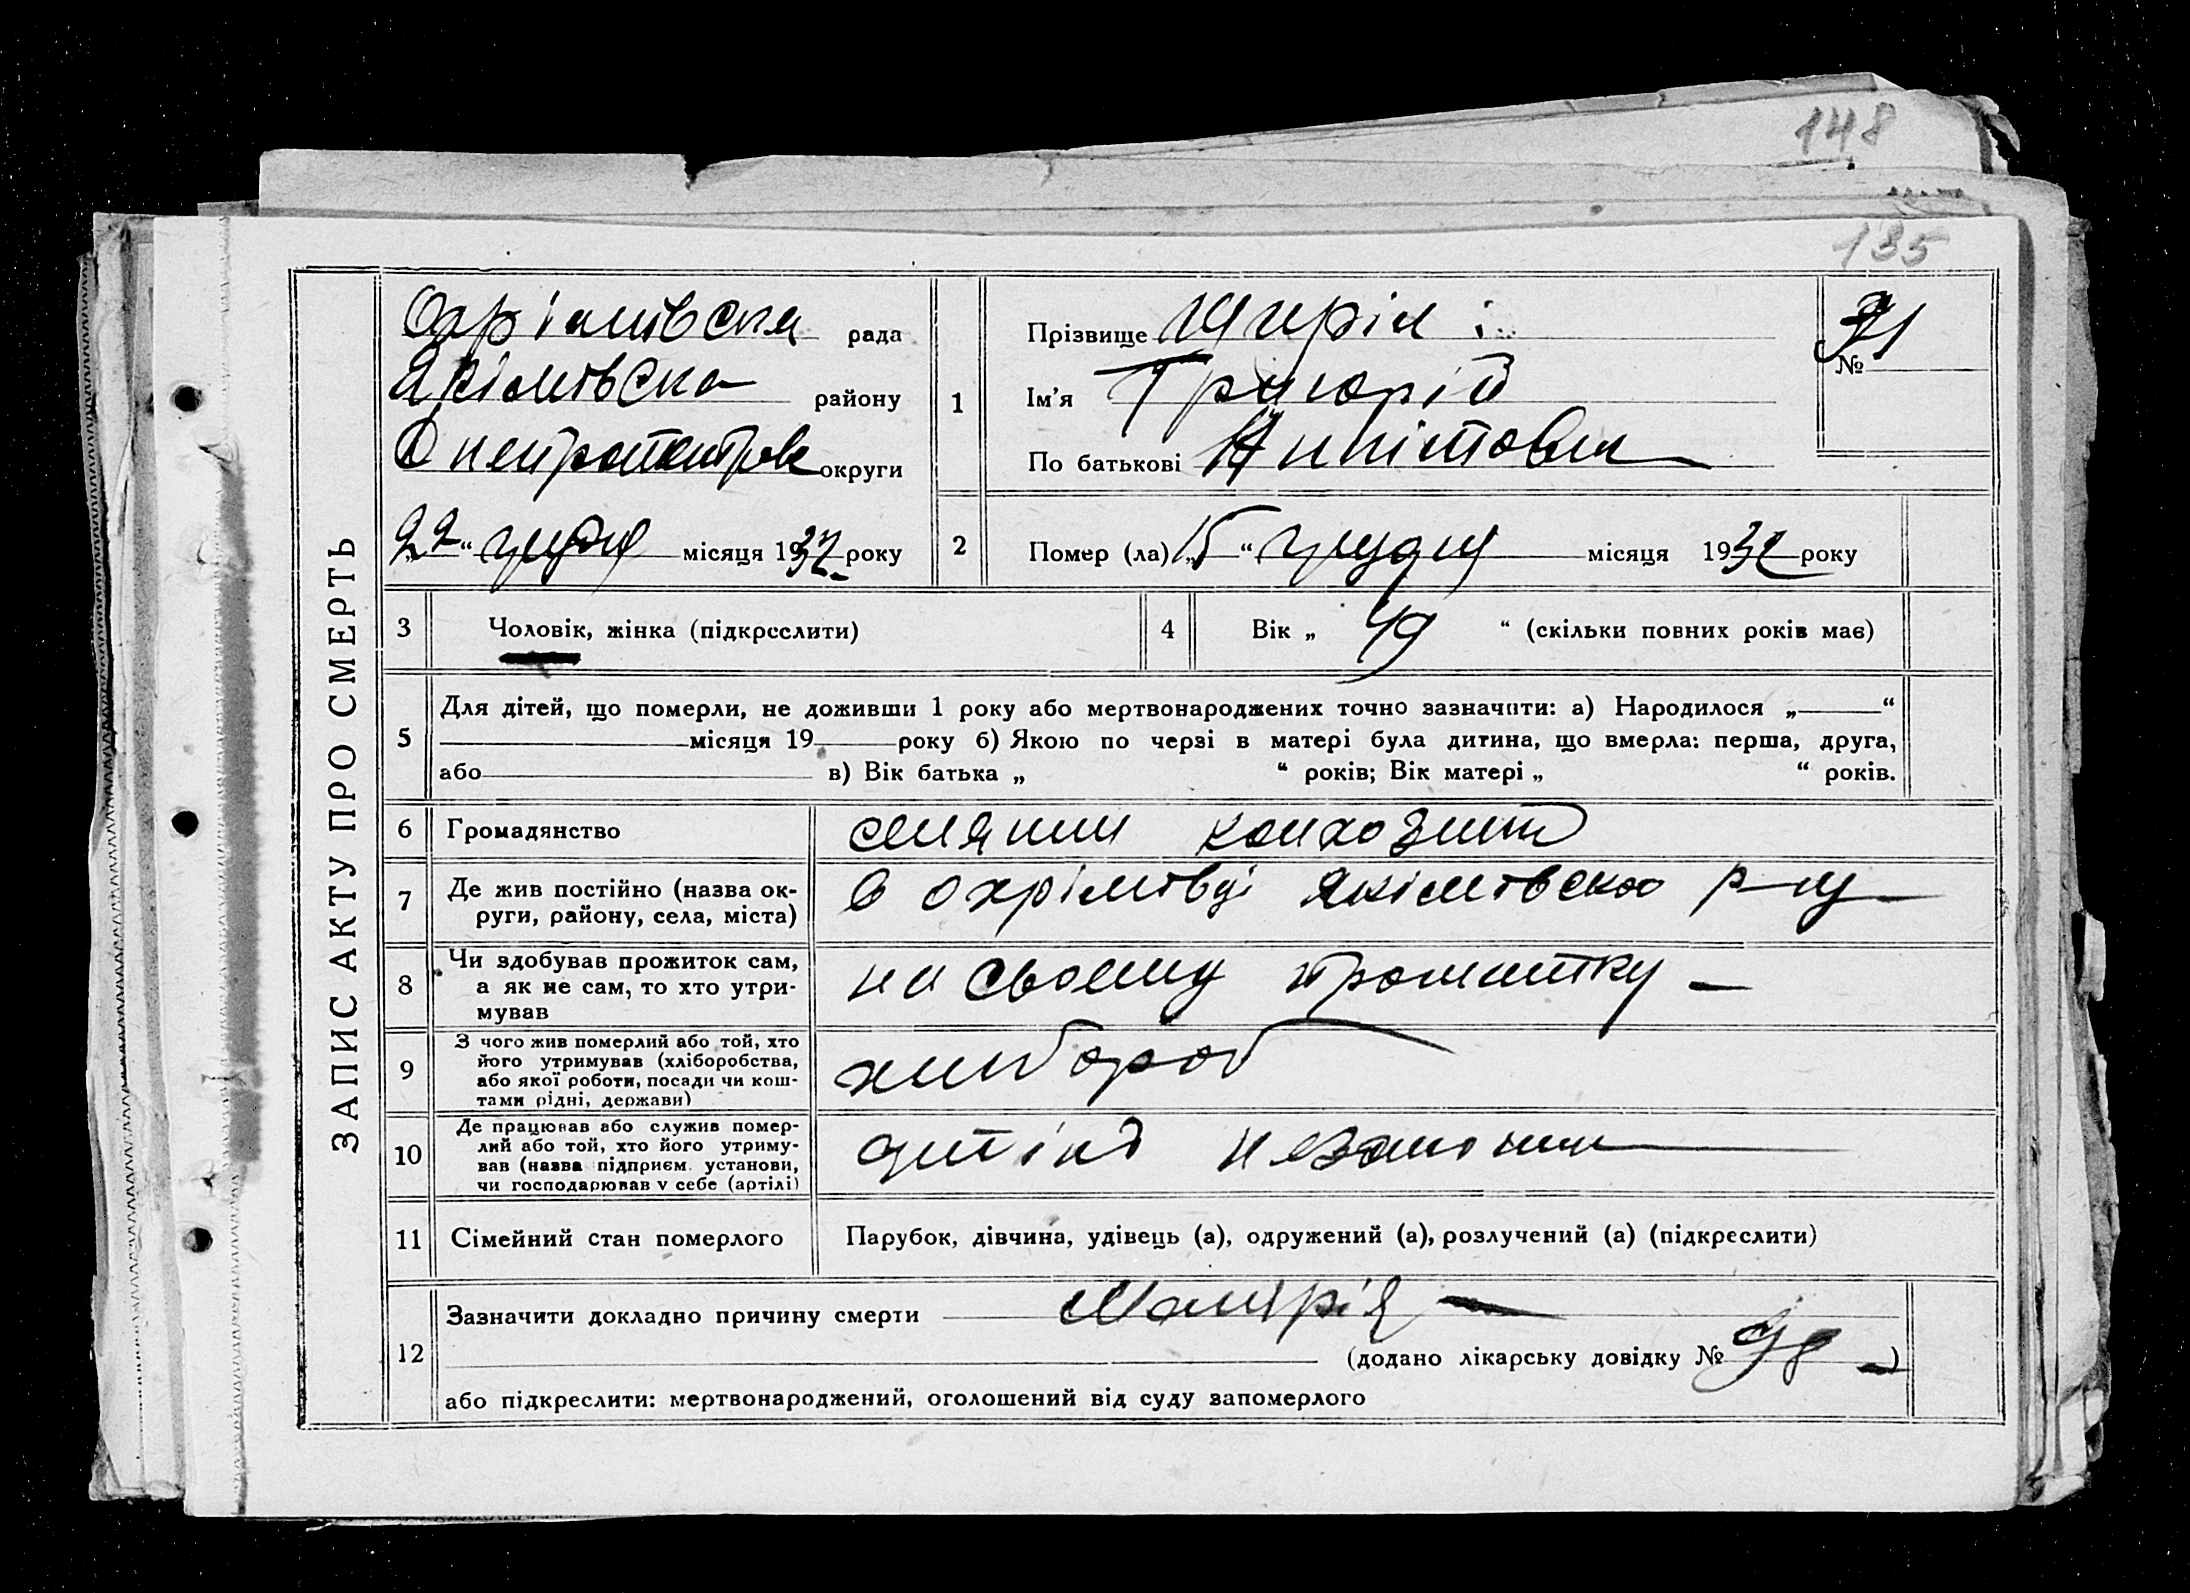 148
135
ЗАПИС АКТУ ПРО СМЕРТЬ
Охрімівска рада
Якімівска району
Днепропетров округи
„22“ грудня місяця 1932 року
1
Прізвище
Ім'я Григорій
По батькові
№ 91
2
Помер (ла) „15“ грудня місяця 1932 року
3
Чоловік, жінка (підкреслити)
4
Вік „ 49 “ (скільки повних років має)
5
Для дітей, що померли, не доживши 1 року або мертвонароджених точно зазначити: а) Народилося „ “
місяця 19 року б) Якою по черзі в матері була дитина, що вмерла: перша, друга,
або в) Вік батька „ “ років; Вік матері „ “ років.
6
Громадянство
селянин колхозник
7
Де жив постійно (назва ок-
руги, району, села, міста)
в Охрімівці Якімівского р-ну
8
Чи здобував прожиток сам,
а як не сам, то хто утри-
мував
на своему прожитку
9
З чого жив померлий або той, хто
його утримував (хліборобства,
або якої роботи, посади чи кош-
тами рідні, держави)
хлібороб
10
Де працював або служив помер-
лий або той, хто його утриму-
вав (назва підприєм. установи,
чи господарював у себе (артілі)
11
Сімейний стан померлого
Парубок, дівчина, удівець (а), одружений (а), розлучений (а) (підкреслити)
12
Зазначити докладно причину смерти Малярія
(додано лікарську довідку № 98 )
або підкреслити: мертвонароджений, оголошений від суду запомерлого